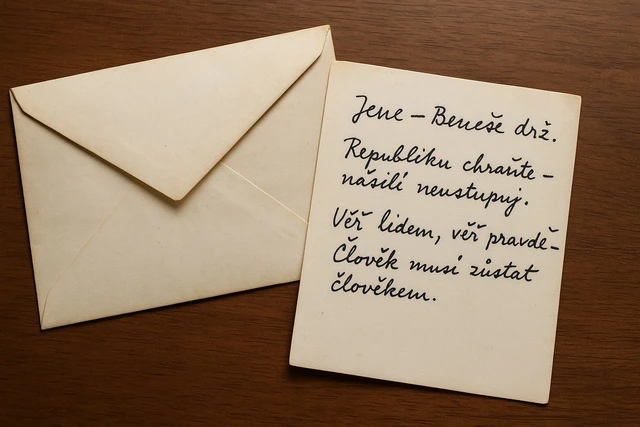 Jene – Beneše drž.
Republiku chraňte –
násilí neustupuj.
Věř lidem, věř pravdě–
Člověk musí zůstat
člověkem.